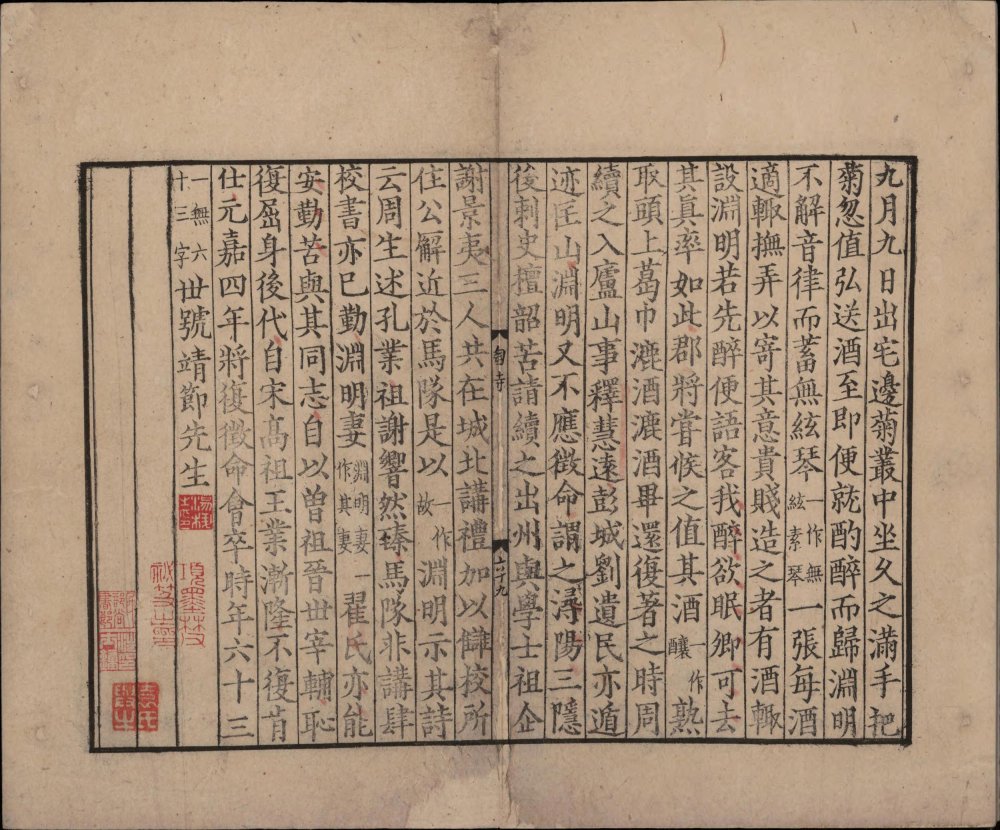 九月九日出宅邊菊叢中坐久之滿手把
菊忽值弘送酒至即便就酌醉而歸淵明
不解音律而蓄無絃琴一作無絃素琴一張每酒
適輙撫弄以寄其意貴賤造之者有酒輙
設淵明若先醉便語客我醉欲眠卿可去
其真率如此郡將嘗候之值其酒一作釀熟
取頭上葛巾漉酒漉酒畢還復著之時周
續之入廬山事釋慧遠彭城劉遺民亦遁
迹匡山淵明又不應徵命謂之潯陽三隱
後刺史檀韶苦請續之出州與學士祖企
謝景夷三人共在城北講禮加以讎校所
住公廨近於馬隊是以一作故淵明示其詩
云周生述孔業祖謝響然臻馬隊非講肆
校書亦已勤淵明妻一淵明妻作其妻翟氏亦能
安勤苦與其同志自以曾祖晉世宰輔恥
復屈身後代自宋高祖王業漸隆不復肯
仕元嘉四年將復徵命會卒時年六十三
一無六十三字世號靖節先生